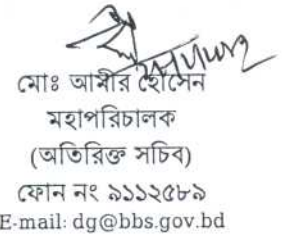 মোঃ আমীর হোসেন
মহাপরিচালক
(অতিরিক্ত সচিব)
ফোন নং ৯১১২৫৮৯
E-mail: dg@bbs.gov.bd